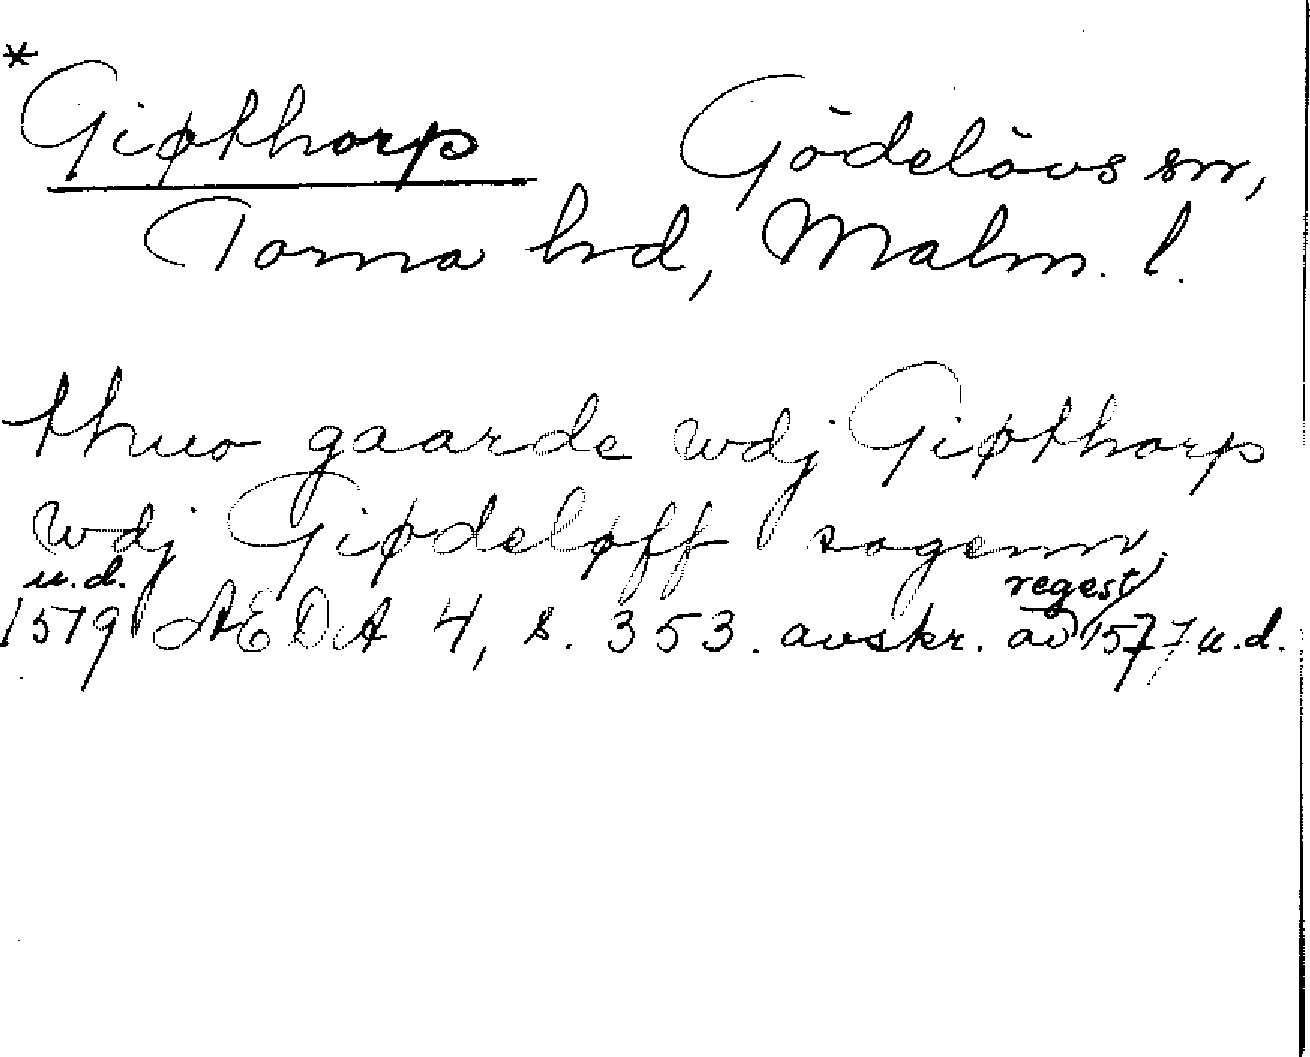 *Giøthorp Gödelövs sn,
Torna hd, Malm. l.
thuo gaarde wdj Giøthorp
wdj Giødeløff sogenn,
u.d. regest
1579 ÆDA 4, s. 353. avskr. av 1577 u.d.